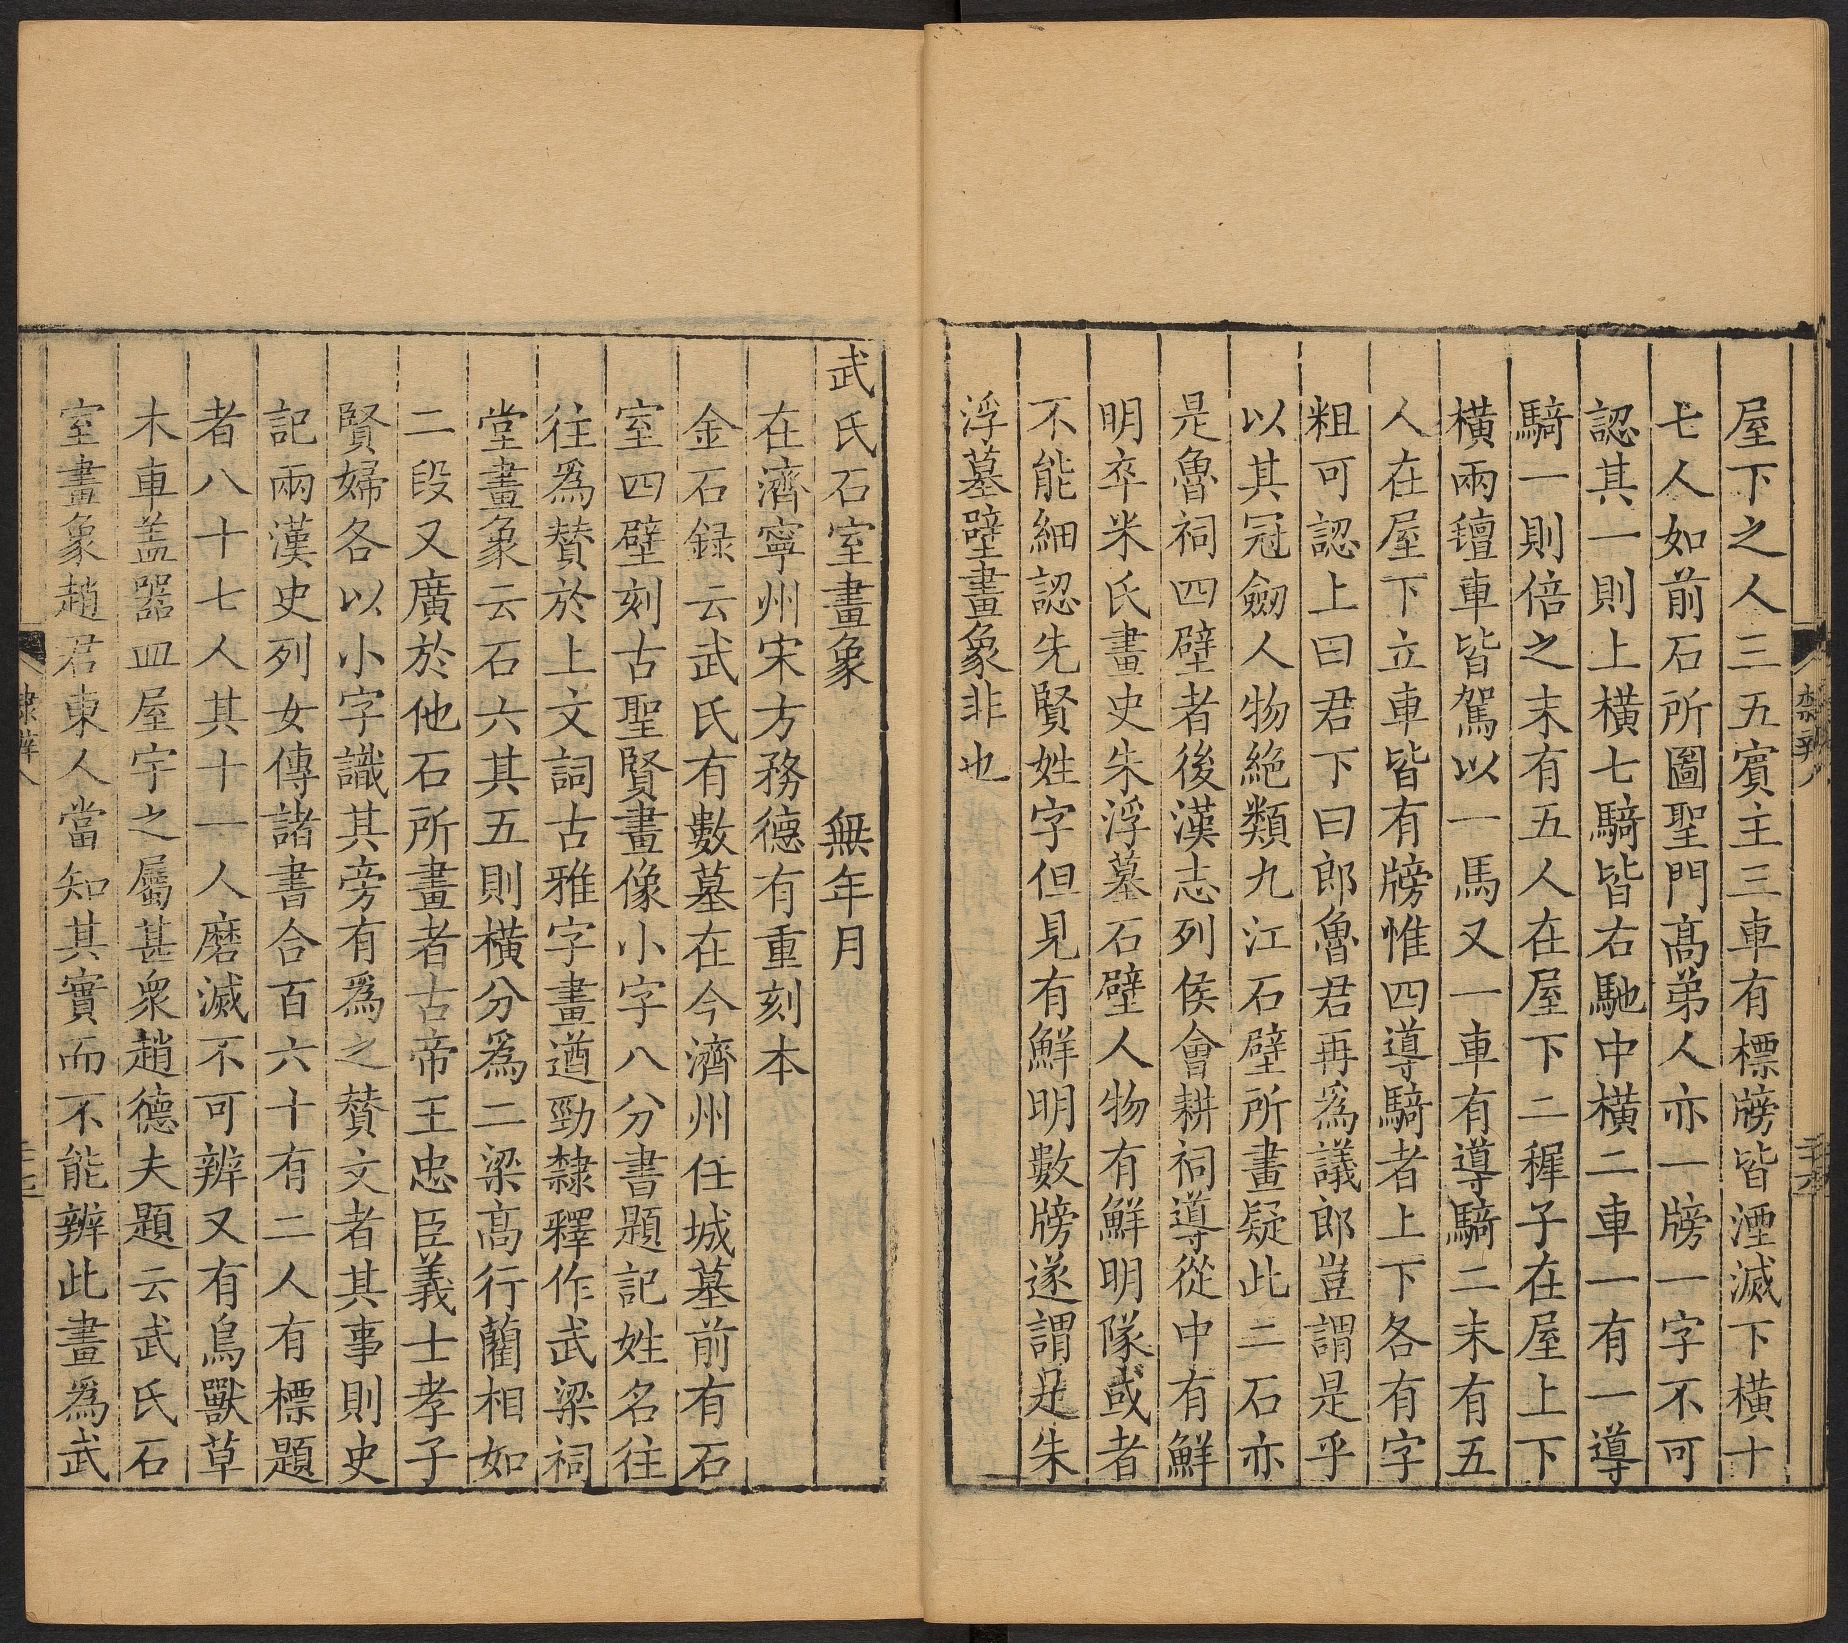 屋下之人三五賓主三車有標牓皆湮滅下橫十
七人如前石所圖聖門高弟人亦一牓一字不可
認其一則上橫七騎皆右馳中橫二車一有一導
騎一則倍之末有五人在屋下二穉子在屋上下
橫兩䡴車皆駕以一馬又一車有導騎二末有五
人在屋下立車皆有牓惟四導騎者上下各有字
粗可認上曰君下曰郎魯君再爲議郎豈謂是乎
以其冠劒人物絶類九江石壁所畫疑此二石亦
是魯祠四壁者後漢志列侯會耕祠導從中有鮮
明卒米氏畫史朱浮墓石壁人物有鮮明隊或者
不能細認先賢姓字但見有鮮明數牓遂謂是朱
浮墓壁畫象非也
武氏石室畫象 無年月
在濟寧州宋方務德有重刻本
金石録云武氏有數墓在今濟州任城墓前有石
室四壁刻古聖賢畫像小字八分書題記姓名往
往爲贊於上文詞古雅字畫遒勁隸釋作武梁祠
堂畫象云石六其五則橫分爲二梁高行藺相如
二段又廣於他石所畫者古帝王忠臣義士孝子
賢婦各以小字識其旁有爲之贊文者其事則史
記兩漢史列女傳諸書合百六十有二人有標題
者八十七人其十一人磨滅不可辨又有鳥獸草
木車盖器皿屋宇之屬甚衆趙德夫題云武氏石
室畫象趙君東人當知其實而不能辨此畫爲武
隸辨八